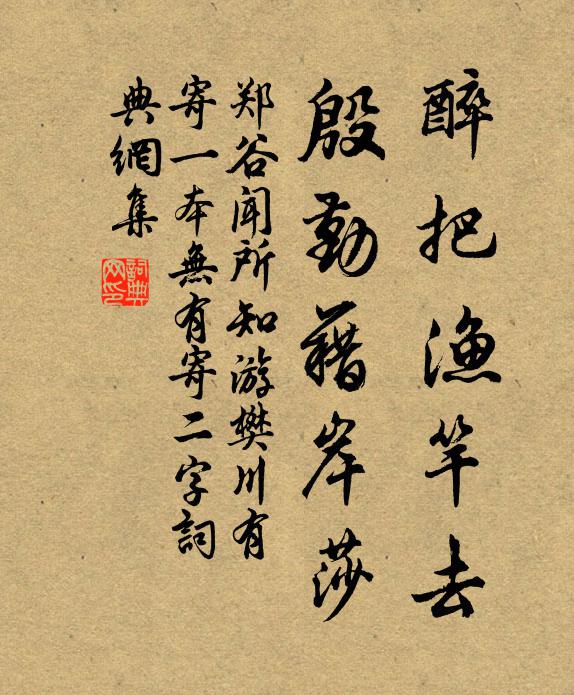 醉把漁竿去
殷勤藉岸莎
郑谷闻所知游樊川有
寄一本無有寄二字詞
典網集
詞典
网印